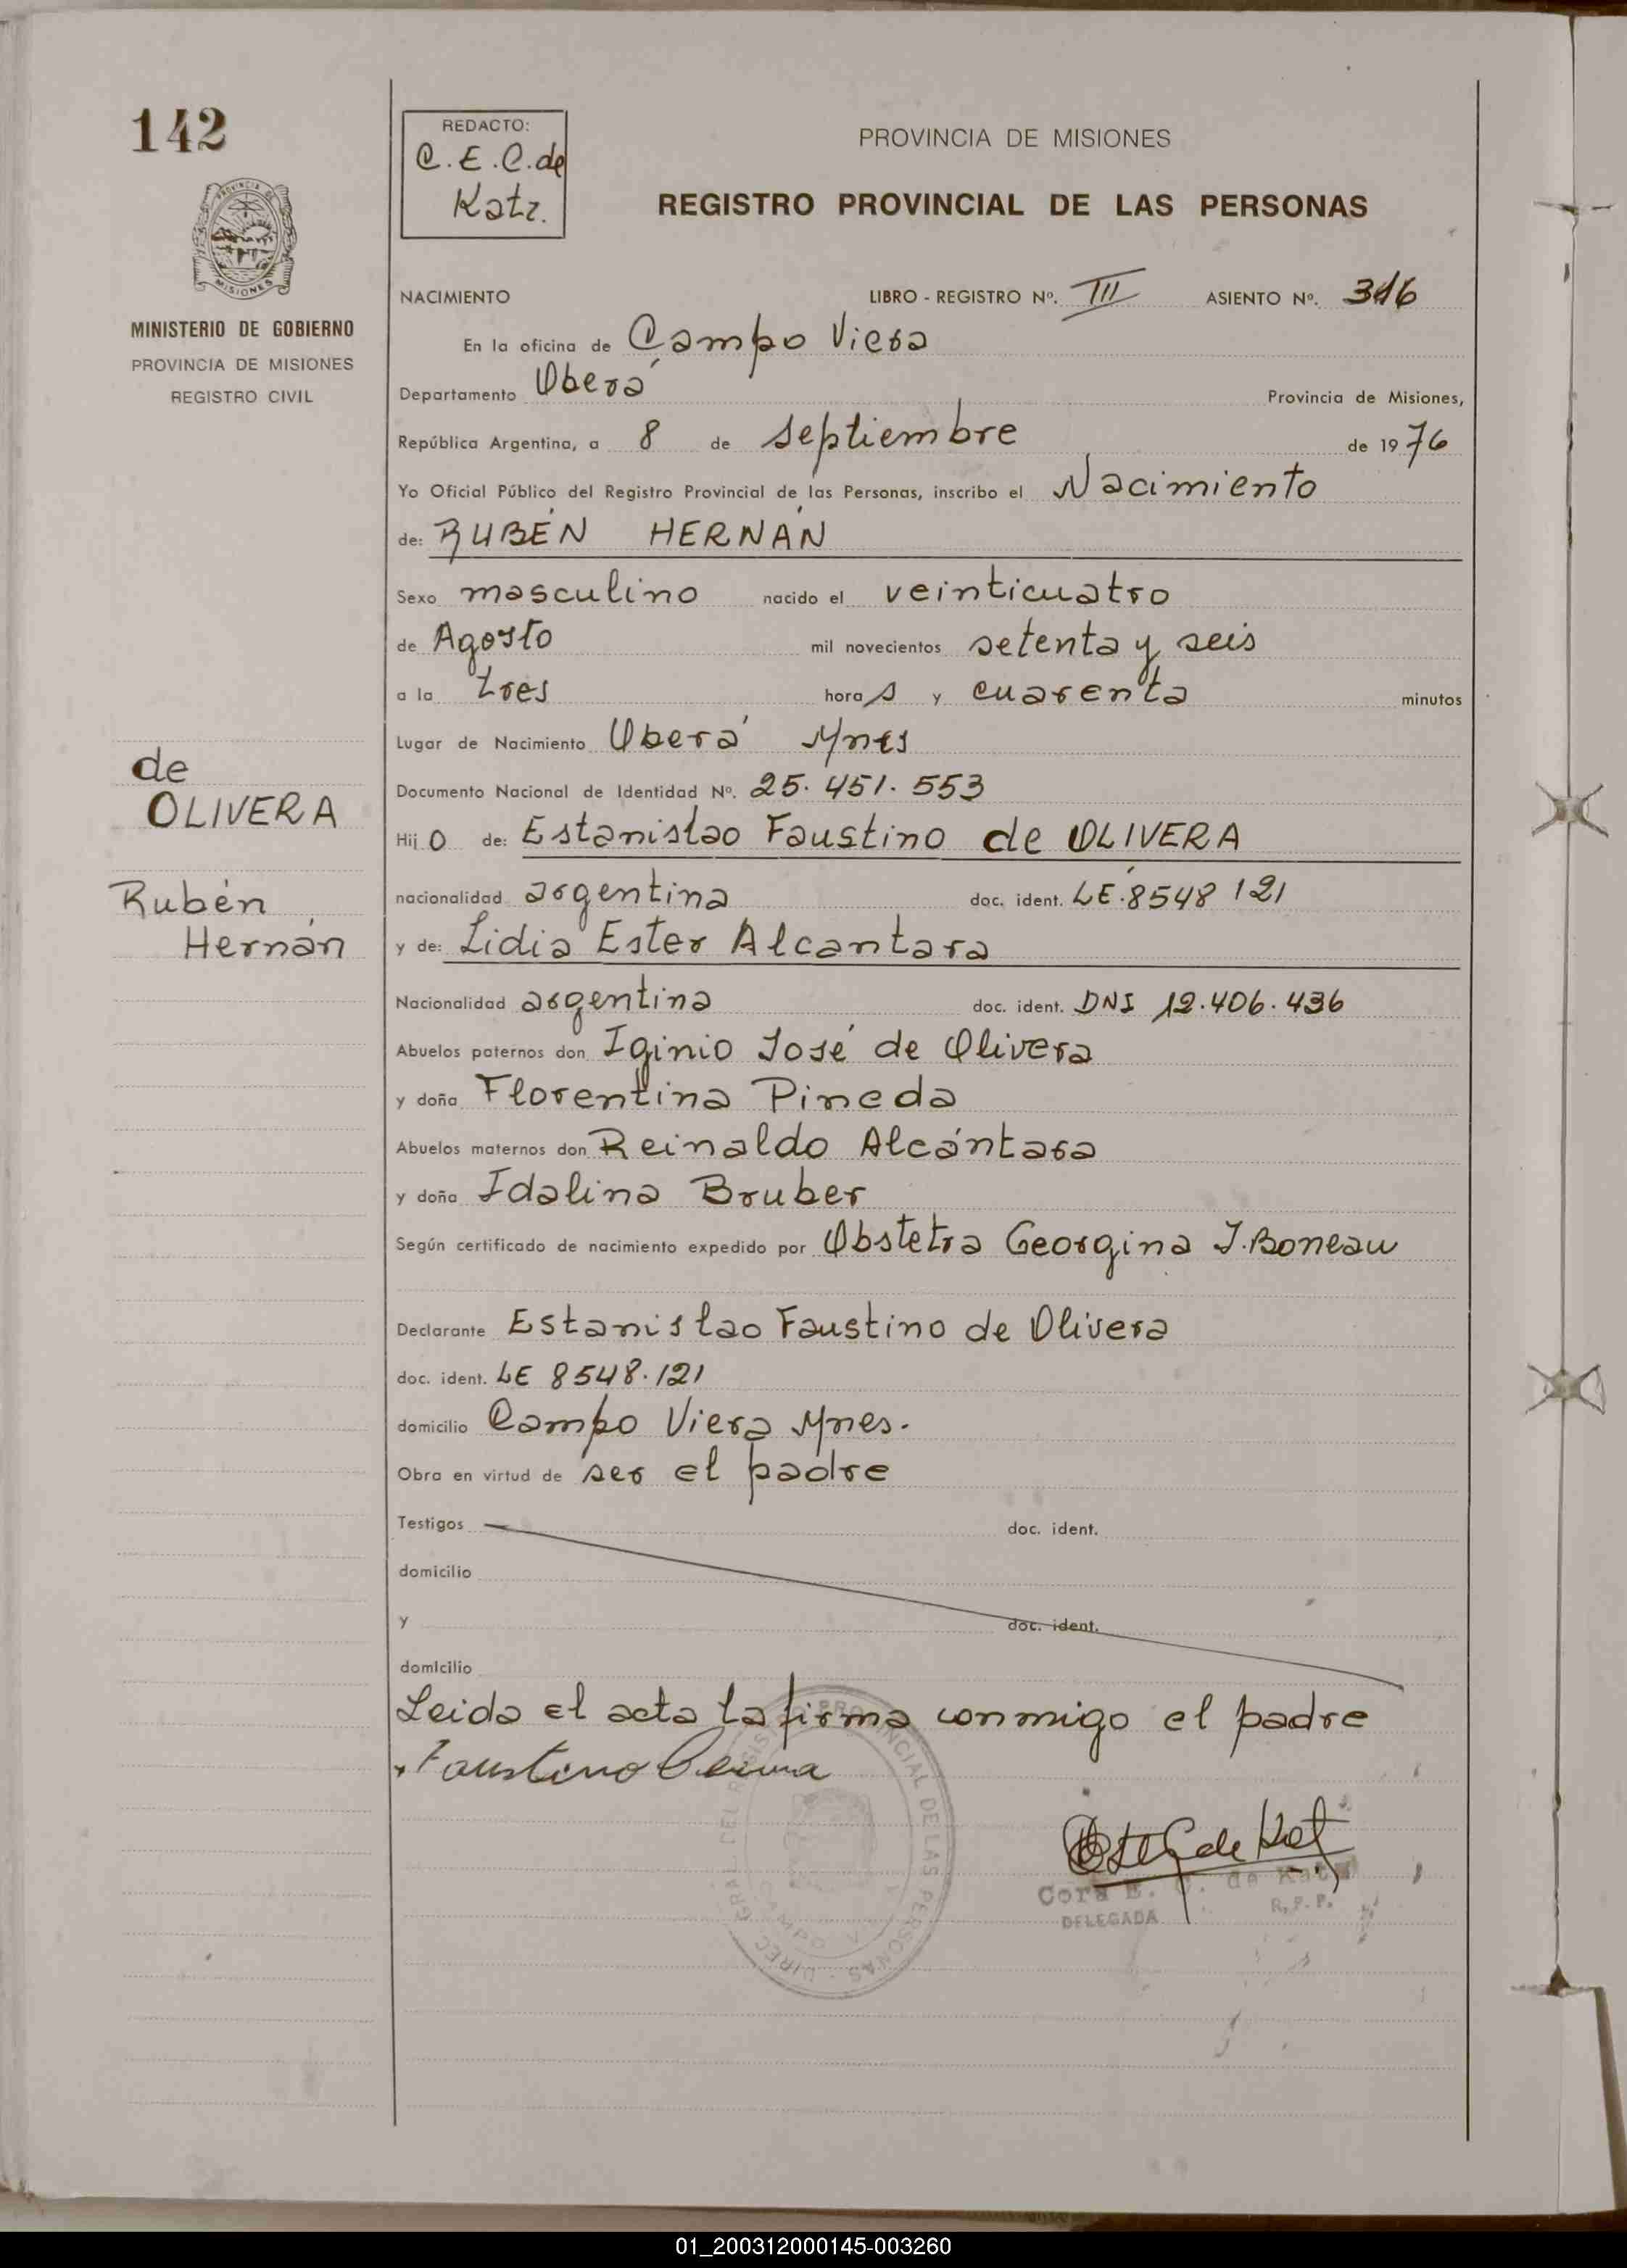 142
REDACTO:
C.E.C. de
Katz.
PROVINCIA DE MISIONES
REGISTRO PROVINCIAL DE LAS PERSONAS
PROVINCIA DE
MISIONES
MINISTERIO DE GOBIERNO
PROVINCIA DE MISIONES
REGISTRO CIVIL
NACIMIENTO LIBRO - REGISTRO Nº. III ASIENTO Nº. 316
En la oficina de Campo Viera
Departamento Oberá Provincia de Misiones,
República Argentina, a 8 de septiembre de 1976
Yo Oficial Público del Registro Provincial de las Personas, inscribo el Nacimiento
de: RUBÉN HERNÁN
Sexo masculino nacido el veinticuatro
de Agosto mil novecientos setenta y seis
a la tres horas y cuarenta minutos
Lugar de Nacimiento Oberá Mnes
Documento Nacional de Identidad Nº. 25.451.553
de
OLIVERA
Rubén
Hernán
Hijo de: Estanislao Faustino de OLIVERA
nacionalidad argentina doc. ident. LE.8548121
y de: Lidia Ester Alcantara
Nacionalidad argentina doc. ident. DNI 12.406.436
Abuelos paternos don Iginio José de Olivera
y doña Florentina Pineda
Abuelos maternos don Reinaldo Alcántara
y doña Idalina Bruber
Según certificado de nacimiento expedido por Obstetra Georgina J. Boneau
Declarante Estanislao Faustino de Olivera
doc. ident. LE 8548.121
domicilio Campo Viera Mnes.
Obra en virtud de ser el padre
Testigos doc. ident.
domicilio
y doc. ident.
domicilio
Leida el acta la firma conmigo el padre
Faustino
Cora E. C. de Katz
DELEGADA R.P.P.
DIREC. GRAL. DEL REGISTRO PROVINCIAL DE LAS PERSONAS
01_200312000145-003260